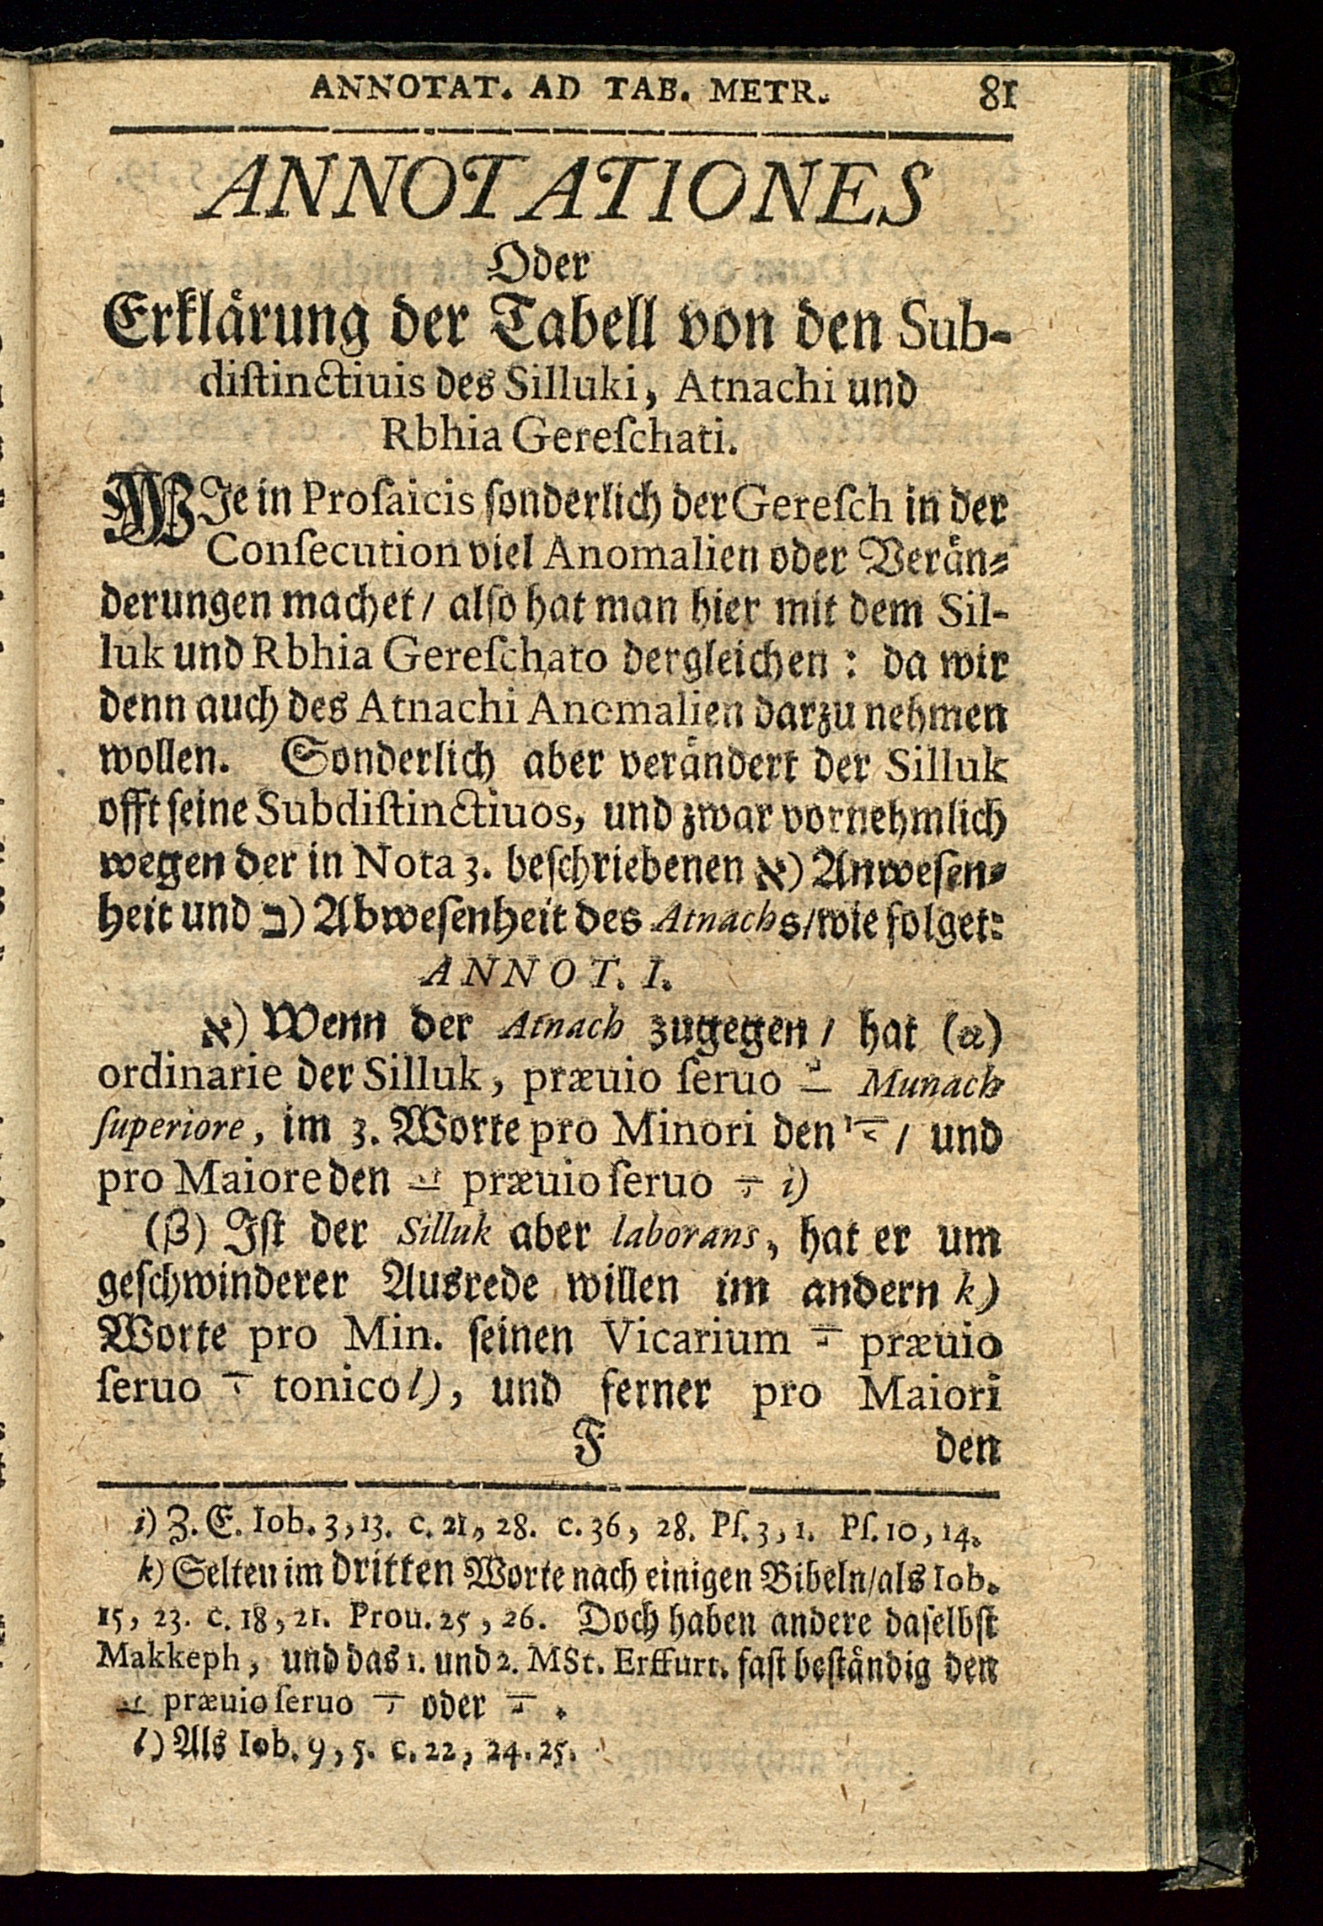 ANNOTAT. AD TAB. METR. 81
ANNOTATIONES
Oder
Erklärung der Tabell von den Sub-
distinctiuis des Silluki, Atnachi und
Rbhia Gereſchati.
WJe in Proſaicis ſonderlich der Gereſch in der
Conſecution viel Anomalien oder Verän-
derungen machet / alſo hat man hier mit dem Sil-
luk und Rbhia Gereſchato dergleichen : da wir
denn auch des Atnachi Anomalien darzu nehmen
wollen. Sonderlich aber verändert der Silluk
offt ſeine Subdiſtinctiuos, und zwar vornehmlich
wegen der in Nota 3. beſchriebenen א) Anweſen-
heit und ב) Abweſenheit des Atnachs / wie folget:
ANNOT. I.
א) Wenn der Atnach zugegen / hat (α)
ordinarie der Silluk, præuio ſeruo Munach
ſuperiore, im 3. Worte pro Minori den / und
pro Maiore den præuio ſeruo i)
(β) Jſt der Silluk aber laborans, hat er um
geſchwinderer Ausrede willen im andern k)
Worte pro Min. ſeinen Vicarium præuio
ſeruo tonico l), und ferner pro Maiori
F den
i) Z. E. Iob. 3, 13. c. 21, 28. c. 36, 28. Pſ. 3, 1. Pſ. 10, 14.
k) Selten im dritten Worte nach einigen Bibeln / als Iob.
15, 23. c. 18, 21. Prou. 25, 26. Doch haben andere daſelbſt
Makkeph, und das 1. und 2. MSt. Erffurt. faſt beſtändig den
præuio ſeruo oder .
l) Als Iob. 9, 5. c. 22, 24. 25.